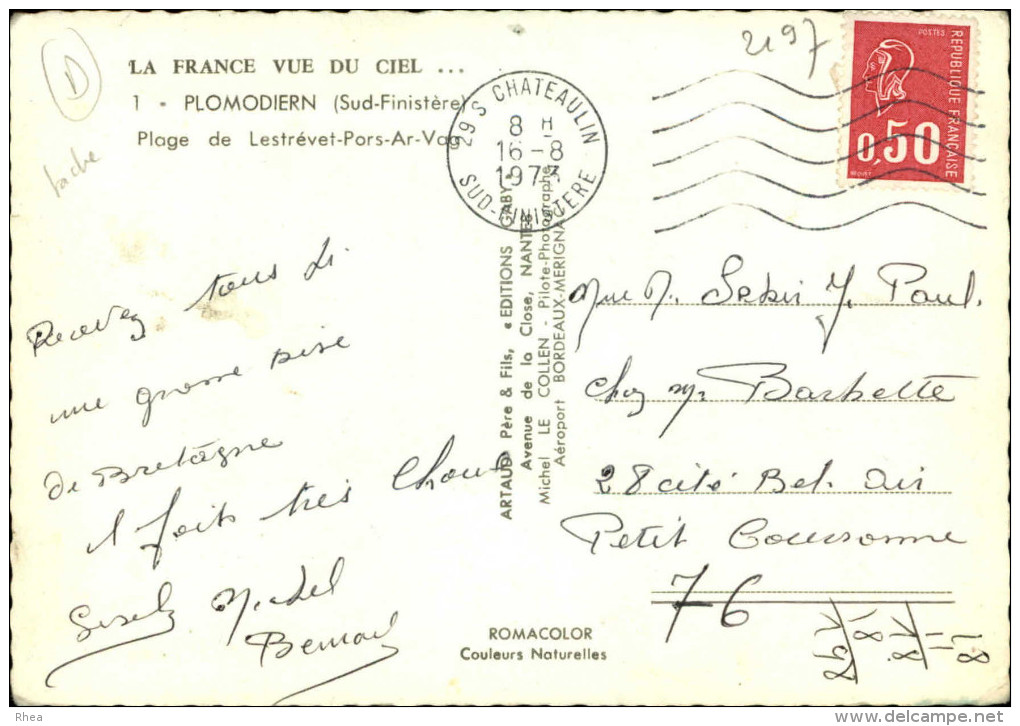 2197
D
LA FRANCE VUE DU CIEL ...
1 - PLOMODIERN (Sud-Finistère)
Plage de Lestrévet-Pors-Ar-Vag
tache
29 S CHATEAULIN
8 H
16-8
1973
SUD-FINISTERE
POSTES
REPUBLIQUE FRANÇAISE
0,50
BEQUET
Recevez tous di
une grosse bise
de Bretagne
il fait très chaud
Michel
Bernard
ARTAUD Père & Fils, « EDITIONS GABY »
Avenue de la Close, NANTES
Michel LE COLLEN - Pilote-Photographe
Aéroport BORDEAUX-MERIGNAC
J. Paul
Chez Mr Barbette
28 cité Bel. Air
Petit Couronne
76
ROMACOLOR
Couleurs Naturelles
Rhea
www.delcampe.net